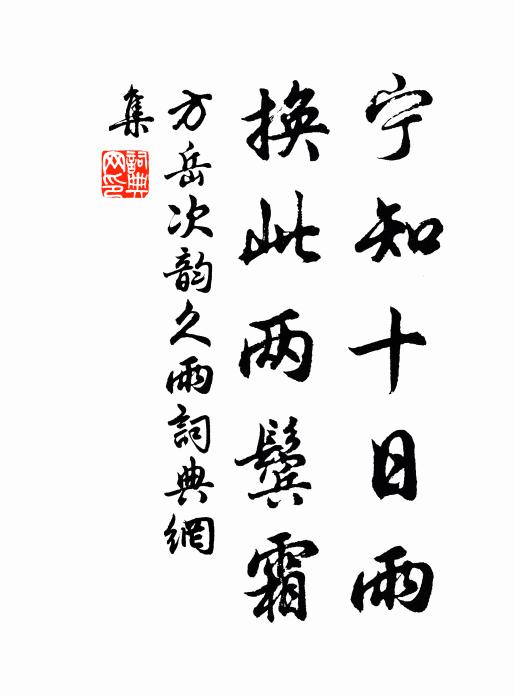 宁知十日雨
换此两鬓霜
方岳次韵久雨詞典網
集
詞典网印